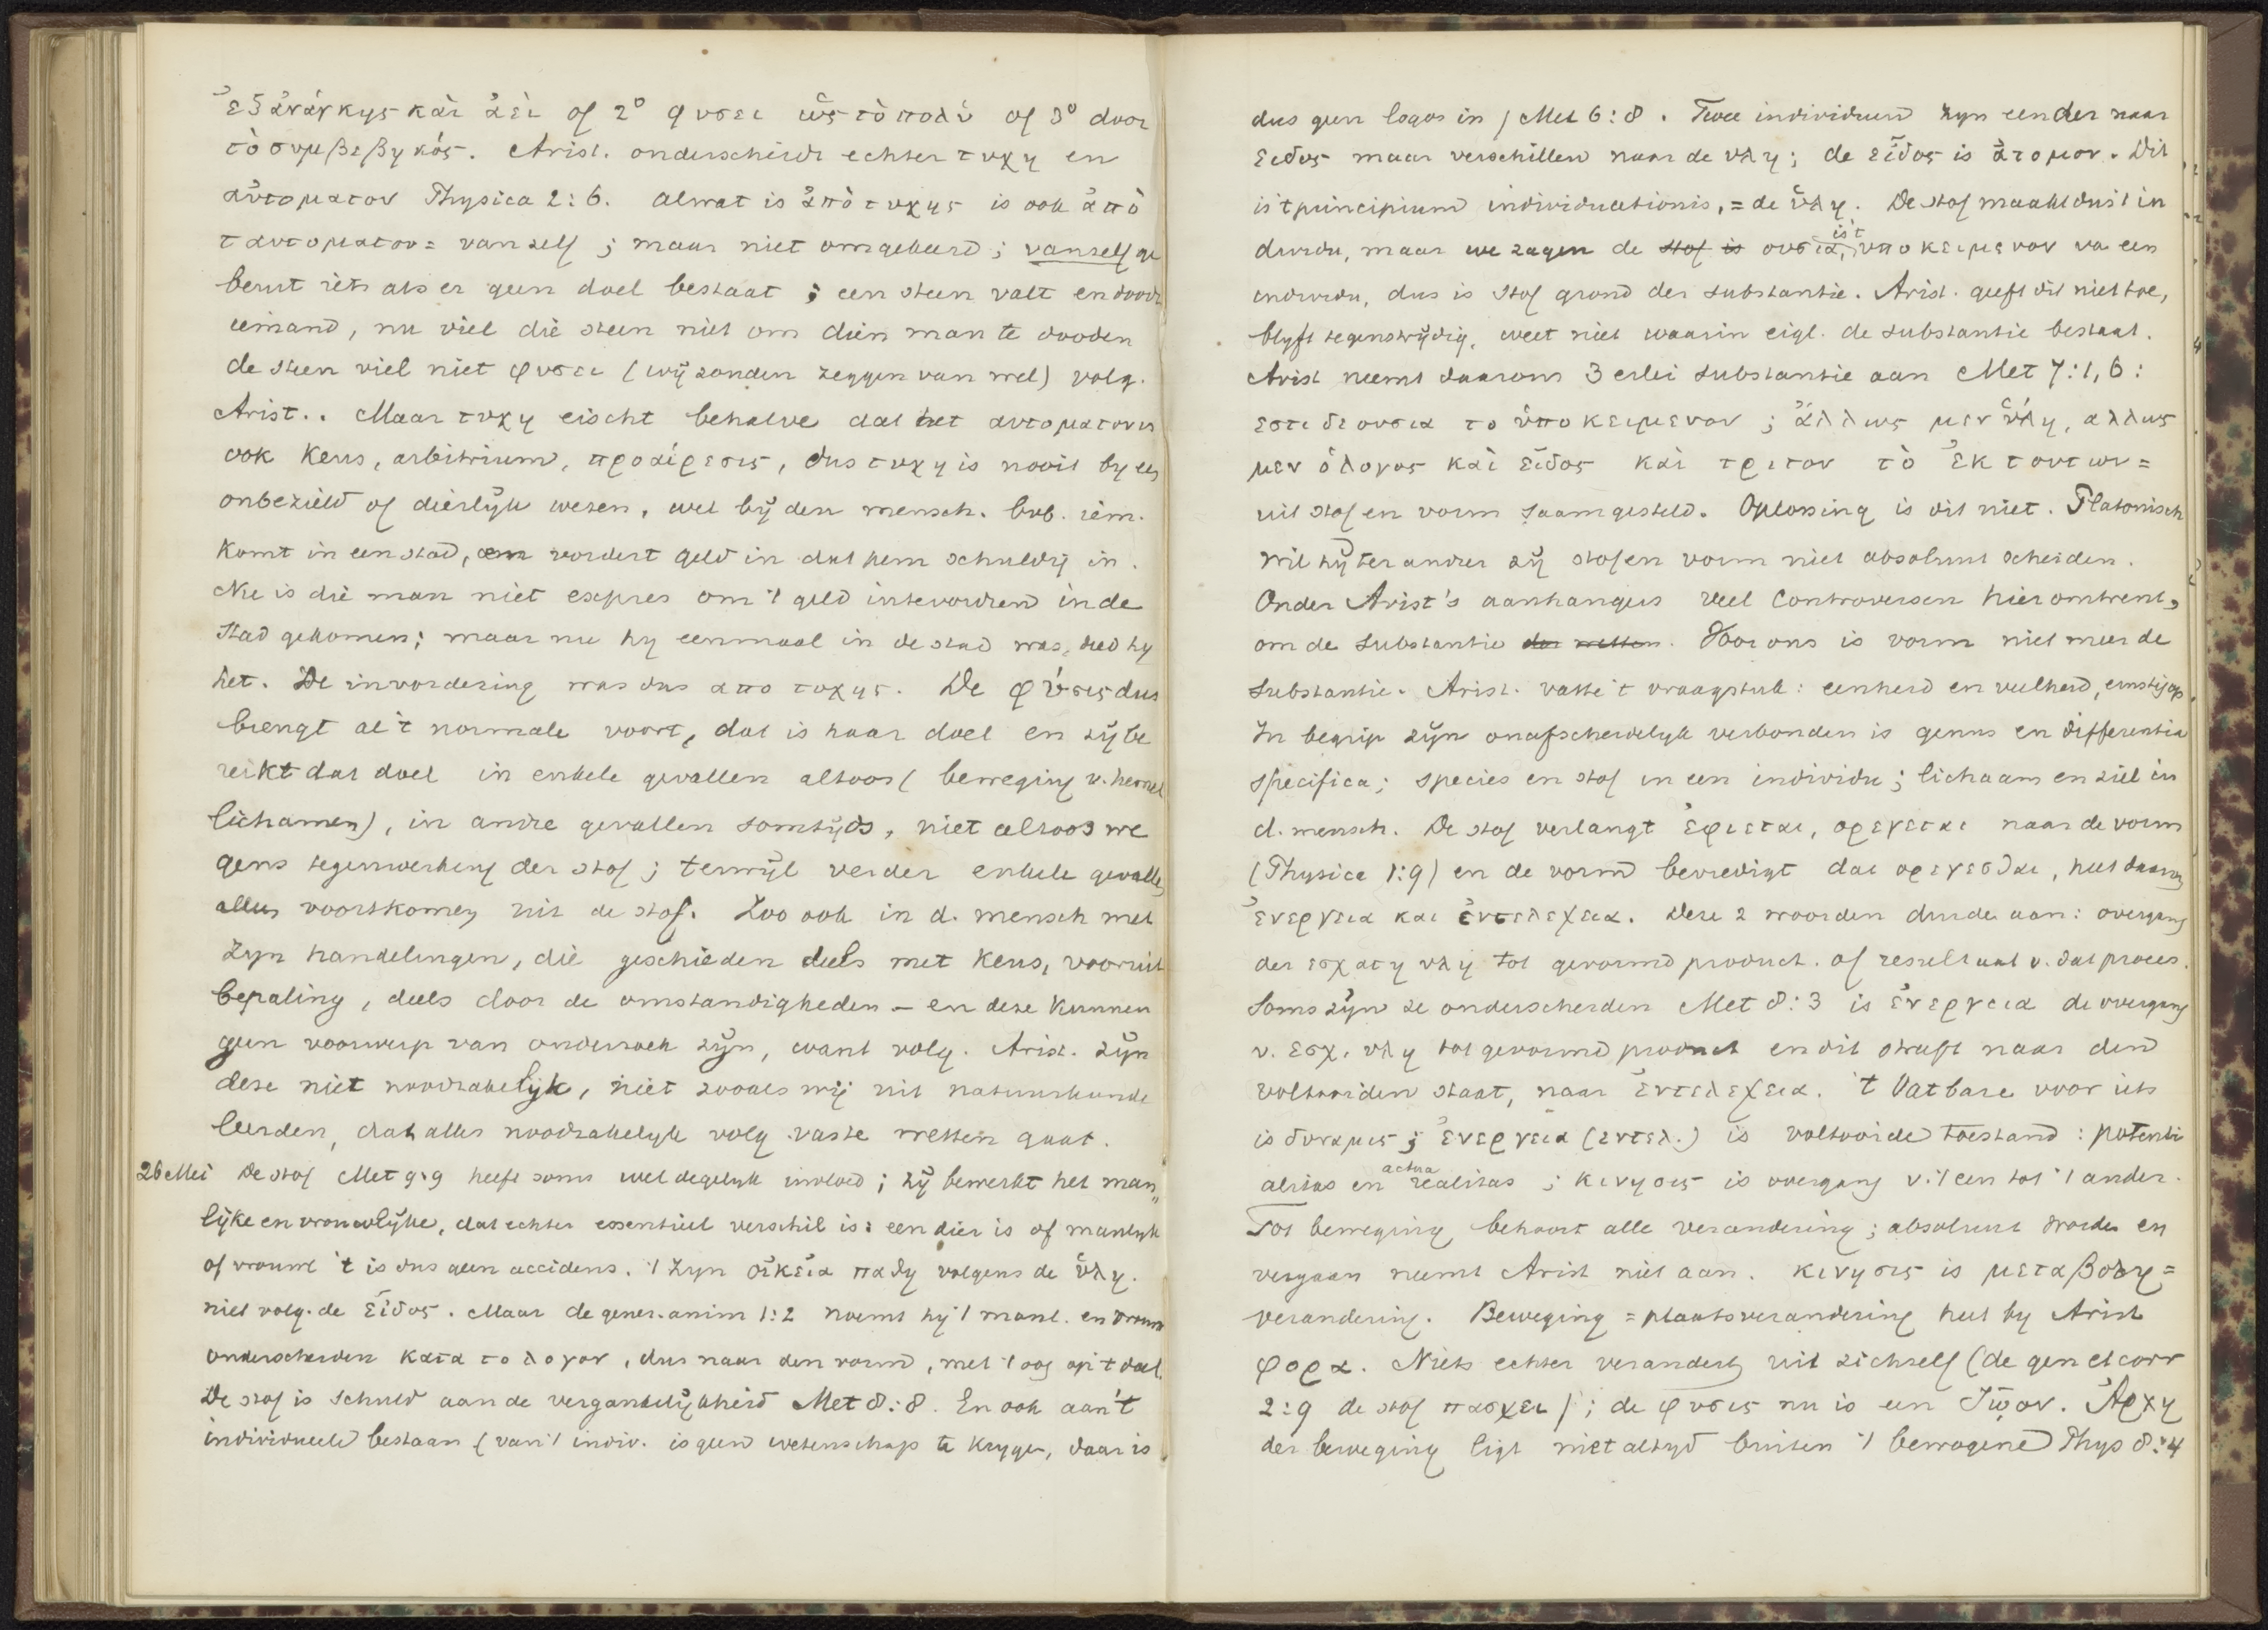 ἐξ ἀνάνκης καὶ ἀεὶ of 2° φυσει ὡς τὸ πολύ of 3° door
τὸ συμβεβηκός. Arist. onderscheidt echter τυχη en
αὐτοματον Physica 2:6. alwat is ἀπὸ τυχης is ook ἀπὸ
ταυτοματον = vanzelf ; maar niet omgekeerd ; vanzelf ge
beurt iets als er geen doel bestaat ; een steen valt en doodt
iemand, nu viel die steen niet om dien man te dooden
de steen viel niet φυσει (wij zouden zeggen van wel) volg.
Arist.. Maar τυχη eischt behalve dat het αυτοματον is
ook keus, arbitrium, προαίρεσις, dus τυχη is nooit by een
onbezield of dierlijk wezen, wel bij den mensch. bvb. iem.
komt in een stad, en vordert geld in dat hem schuldig in.
Nu is die man niet expres om 't geld intevorderen in de
stad gekomen; maar nu hy eenmaal in de stad was, deed hy
het. De invordering was dus απο τυχης. De φύσις dus
brengt al 't normale voort, dat is haar doel en zij be
reikt dat doel in enkele gevallen altoos (beweging v. hemel
lichamen), in andre gevallen somtijds, niet altoos we
gens tegenwerking der stof ; terwijl verder enkele gevallen
alleen voortkomen uit de stof. Zoo ook in d. mensch met
zyn handelingen, die geschieden deels met keus, vooruit
bepaling, deels door de omstandigheden – en deze kunnen
geen voorwerp van onderzoek zijn, want volg. Arist. zijn
deze niet noodzakelijk, niet zooals wij uit natuurkunde
leerden, dat alles noodzakelyk volg. vaste wetten gaat.
26 Mei De stof Met 9:9 heeft soms wel degelyk invloed ; zij bewerkt het man„
lijke en vrouwlijke, dat echter essentieel verschil is : een dier is of manlyk
of vrouwl 't is dus geen accidens. 't Zyn οἰκεῖα παθη volgens de ὕλη.
niet volg. de εἶδος. Maar de gener. anim 1:2 noemt hij 't manl. en vrouw
onderscheiden κατα το λογον, dus naar den vorm, met 't oog op 't doel.
De stof is schuld aan de vergankelijkheid Met 8:8. En ook aan 't
individueele bestaan (van 't indiv. is geen wetenschap te krygen, daar is
dus geen logos in) Met 6:8. Twee individuen zyn eender naar
ειδος maar verschillen naar de υλη; de εἶδος is ἄτομον. Dit
is 't principium individuationis, = de ὕλη. De stof maakt dus 't in
dividu, maar we zagen de stof is ουσια, is 't υποκειμενον va een
individu, dus is stof grond der substantie. Arist. geeft dit niet toe,
blyft tegenstrijdig, weet niet waarin eigl. de substantie bestaat.
Arist neemt daarom 3 erlei substantie aan Met 7:1,6:
εστι δε ουσια το ὑποκειμενον ; ἄλλως μεν ὕλη, αλλως
μεν ὁ λογος καὶ εἶδος καὶ τριτον τὸ ἐκ τουτων =
uit stof en vorm saamgesteld. Oplossing is dit niet. Platonisch
wil hij ter andrer zij stof en vorm niet absoluut scheiden.
Onder Arist's aanhangers veel controversen hieromtrent,
om de substantie der wetten. Voor ons is vorm niet meer de
substantie. Arist. vatte 't vraagstuk : eenheid en veelheid, ernstig op.
In begrip zijn onafscheidelyk verbonden is genus en differentia
specifica ; species en stof in een individu ; lichaam en ziel in
d. mensch. De stof verlangt ἐφιεται, ορεγεται naar de vorm
(Physica 1:9) en de vorm bevredigt dat ορεγεσθαι, heet daarom
ἐνεργεια και ἐντελεχεια. Deze 2 woorden duiden aan : overgang
der εσχατη υλη tot gevormd product. of resultaat v. dat proces.
Soms zijn ze onderscheiden Met 8:3 is ἐνεργεια de overgang
v. εσχ. υλη tot gevormd product en dit streeft naar den
voltooiden staat, naar ἐντελεχεια. 't Vatbare voor iets
is δυναμις ; ἐνεργεια (εντελ.) is voltooide toestand : potenti
alitas en actua realitas ; κινησις is overgang v. 't een tot 't ander.
Tot beweging behoort alle verandering ; absoluut worden en
vergaan neemt Arist niet aan. κινησις is μεταβολη =
verandering. Beweging = plaatsverandering heet by Arist
φορα. Niets echter verandert uit zichzelf (de gen et corr
2:9 de stof πασχει) ; de φυσις nu is een ζῷον. Ἀρχη
der beweging ligt niet altyd buiten 't bewogene Phys 8:4